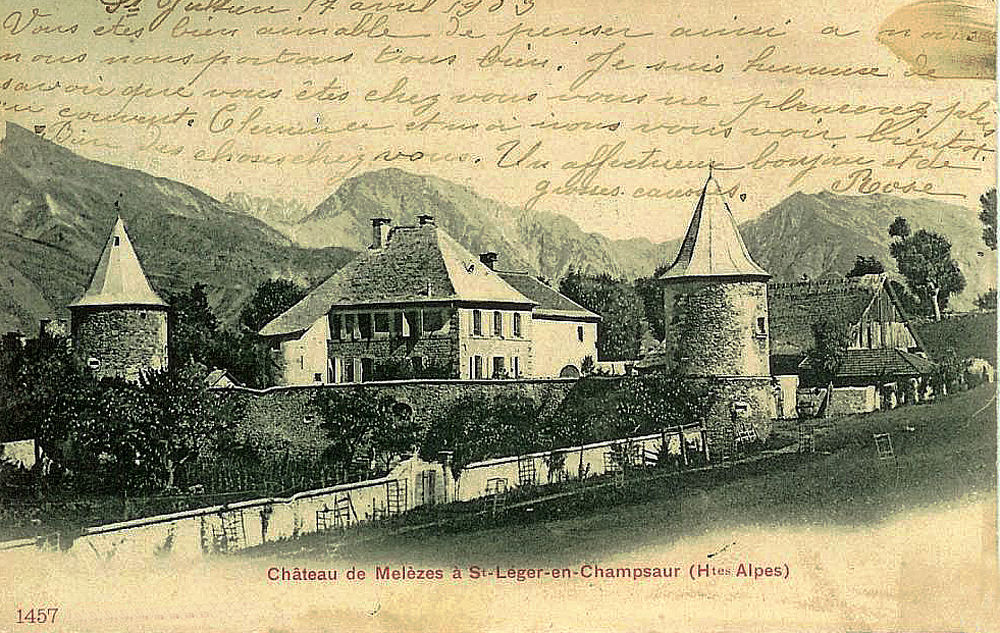 St Julien 17 avril 1903
Vous êtes bien aimable de penser ainsi a nous
nous nous portons tous bien. Je suis heureuse de
savoir que vous êtes chez vous vous ne pleurerez plus
souvent. Clemence et moi nous vous voir bientot.
Bien des choses chez vous. Un affectueux bonjour et de
grosses caresses. Rose
Château de Melèzes à St-Léger-en-Champsaur (Htes Alpes)
1457